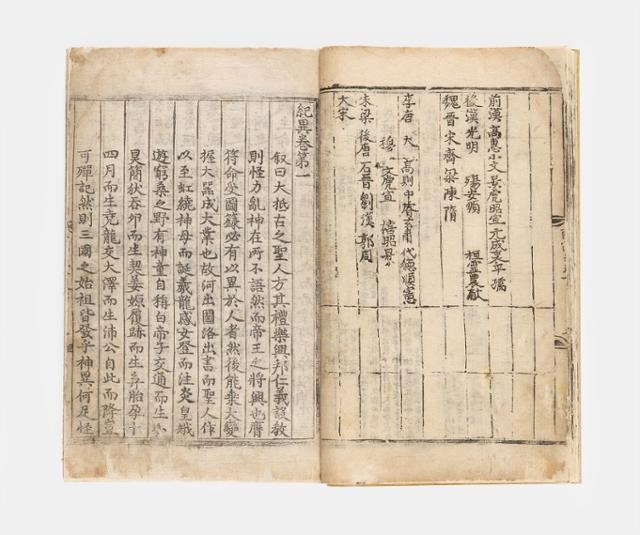 前漢 高惠小文景虎昭宣元成哀平孺
後漢光明 殤安順 桓靈農献
魏晉宋齊梁陳隋
李唐 太 高則中睿玄肅代德順憲
穆 文虎宣 僖昭景
朱梁後唐石晉劉漢郭周
大宋
紀異卷第一
叙曰大抵古之聖人方其禮樂興邦仁義設教
則怪力亂神在所不語然而帝王之將興也膺
符命受圖籙必有以異於人者然後能乘大變
握大器成大業也故河出圖洛出書而聖人作
以至虹繞神母而誕羲龍感女登而注炎皇娥
遊窮桑之野有神童自稱白帝子交通而生小
昊簡狄吞卵而生契姜嫄履跡而生弃胎孕十
四月而生堯龍交大澤而生沛公自此而降豈
可殫記然則三國之始祖皆發乎神異何足怪